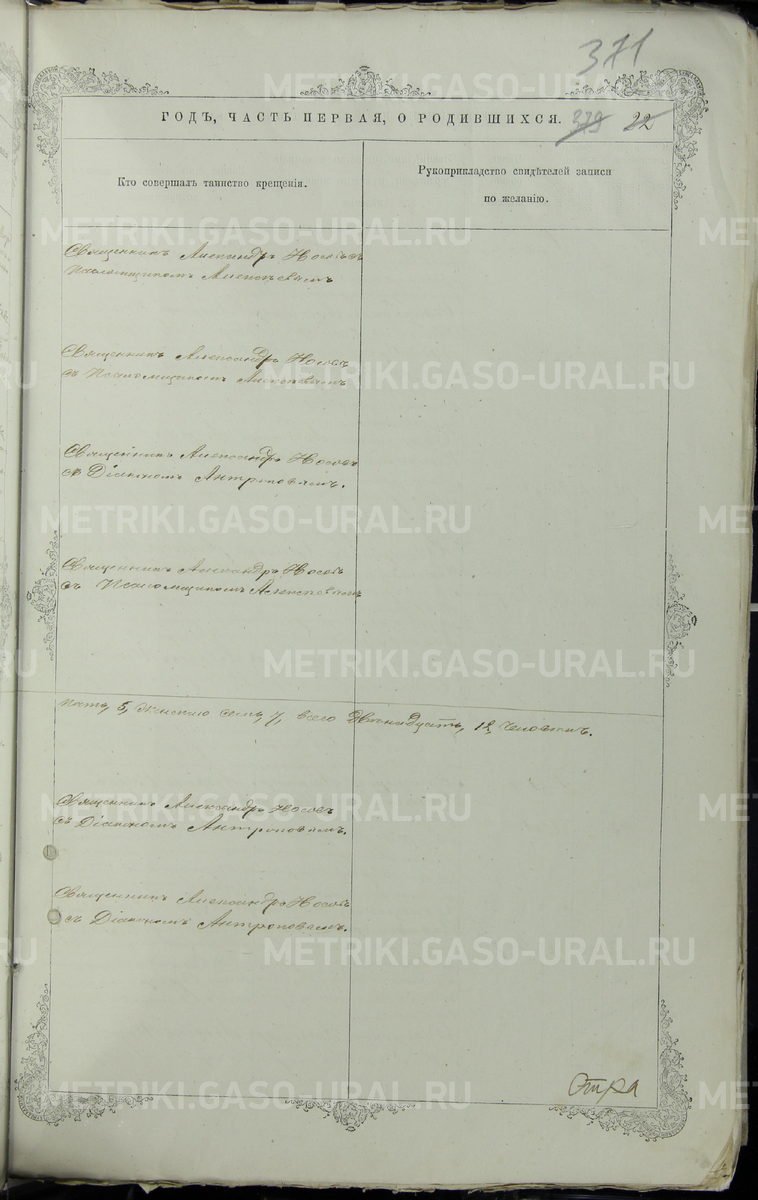 371
ГОДЪ, ЧАСТЬ ПЕРВАЯ, О РОДИВШИХСЯ. 379 22
Кто совершалъ таинство крещенія.
Рукоприкладство свидѣтелей записи
по желанію.
Священникъ Александръ Носовъ съ
Псаломщикомъ Алексѣевымъ
Священникъ Александръ Носовъ
съ Псаломщикомъ
Священникъ Александръ Носовъ
съ Діакономъ Антроповымъ.
Священникъ Александръ Носовъ
съ Псаломщикомъ
пять, 5, женскаго семь, 7, всего двѣнадцать, 12, человѣкъ.
Священникъ Александръ Носовъ
съ Діакономъ Антроповымъ.
Священникъ Александръ Носовъ
съ Діакономъ Антроповымъ.
METRIKI.GASO-URAL.RU